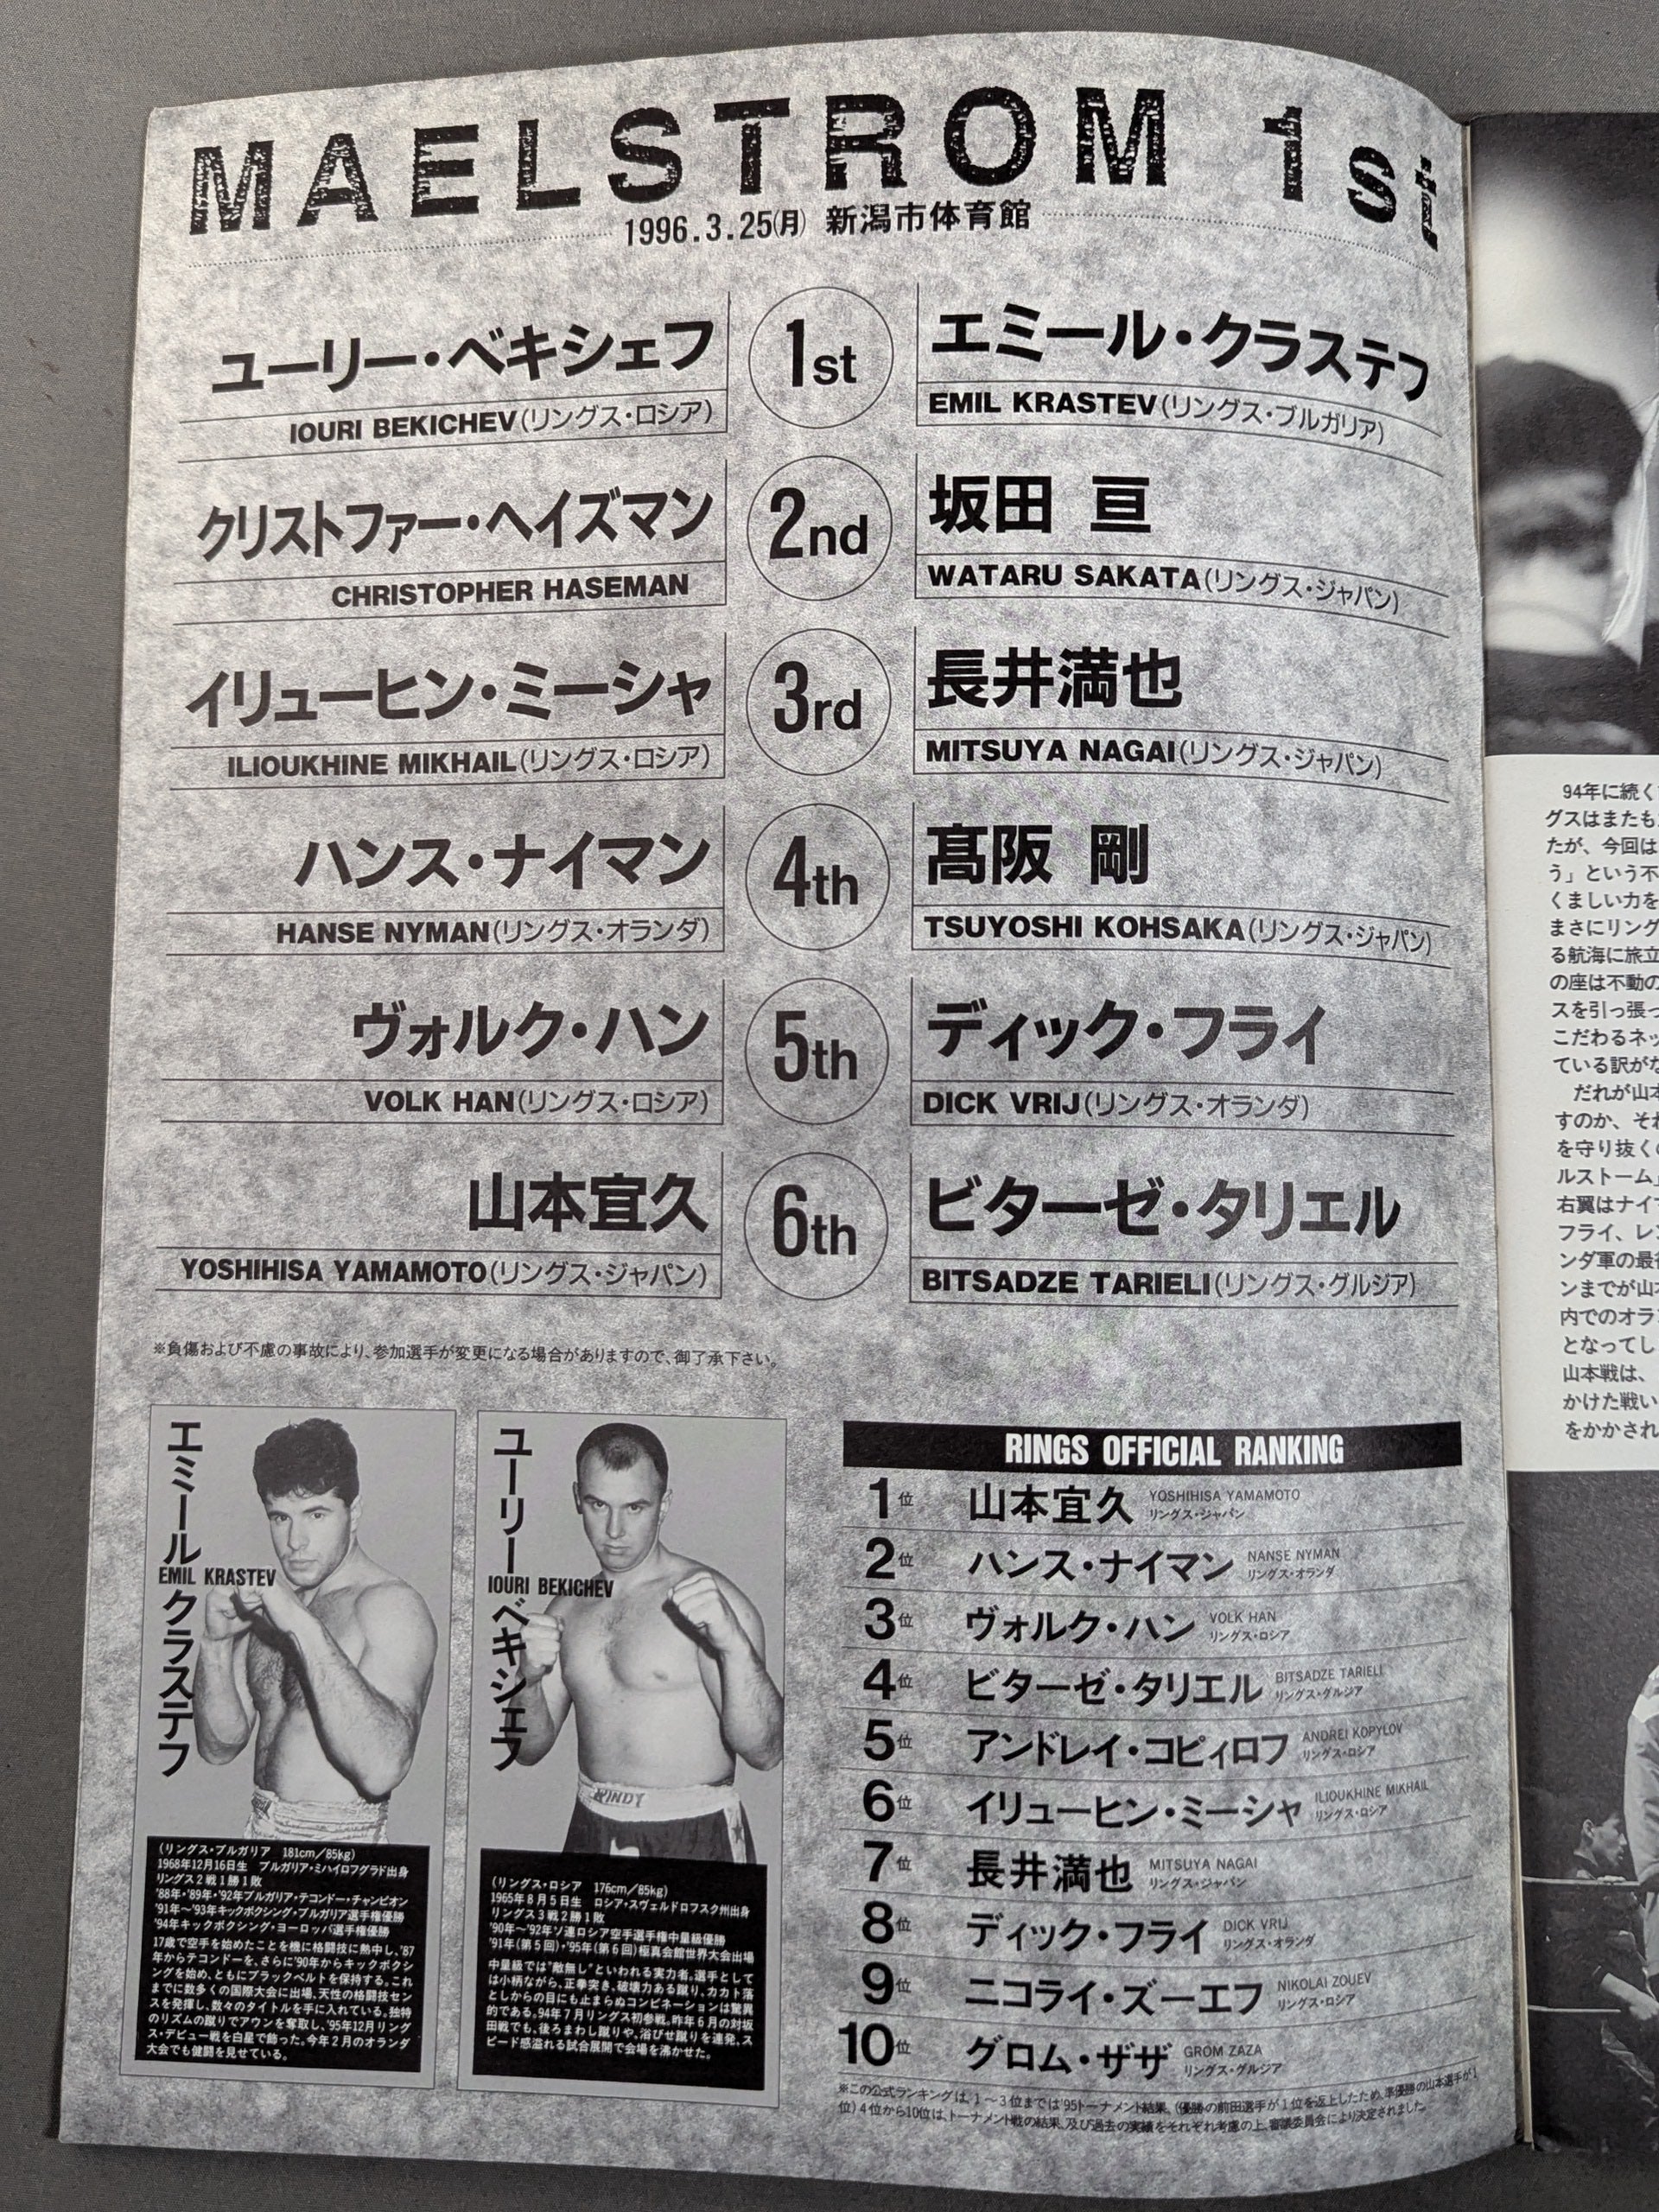 MAELSTROM 1st
1996.3.25(月) 新潟市体育館
ユーリー・ベキシェフ
IOURI BEKICHEV(リングス・ロシア)
1st
エミール・クラステフ
EMIL KRASTEV(リングス・ブルガリア)
クリストファー・ヘイズマン
CHRISTOPHER HASEMAN
2nd
坂田 亘
WATARU SAKATA(リングス・ジャパン)
イリューヒン・ミーシャ
ILIOUKHINE MIKHAIL(リングス・ロシア)
3rd
長井満也
MITSUYA NAGAI(リングス・ジャパン)
ハンス・ナイマン
HANSE NYMAN(リングス・オランダ)
4th
髙阪 剛
TSUYOSHI KOHSAKA(リングス・ジャパン)
ヴォルク・ハン
VOLK HAN(リングス・ロシア)
5th
ディック・フライ
DICK VRIJ(リングス・オランダ)
山本宜久
YOSHIHISA YAMAMOTO(リングス・ジャパン)
6th
ビターゼ・タリエル
BITSADZE TARIELI(リングス・グルジア)
※負傷および不慮の事故により、参加選手が変更になる場合がありますので、御了承下さい。
エミール・クラステフ
EMIL KRASTEV
(リングス・ブルガリア 181cm/85kg)
1968年12月16日生 ブルガリア・ミハイロフグラド出身
リングス2戦1勝1敗
'88年・'89年・'92年ブルガリア・テコンドー・チャンピオン
'91年〜'93年キックボクシング・ブルガリア選手権優勝
'94年キックボクシング・ヨーロッパ選手権優勝
17歳で空手を始めたことを機に格闘技に熱中し、'87
年からテコンドーを、さらに'90年からキックボクシ
ングを始め、ともにブラックベルトを保持する。これ
までに数多くの国際大会に出場、天性の格闘技セン
スを発揮し、数々のタイトルを手に入れている。独特
のリズムの蹴りでアウンを奪取し、'95年12月リング
ス・デビュー戦を白星で飾った。今年2月のオランダ
大会でも健闘を見せている。
ユーリー・ベキシェフ
IOURI BEKICHEV
WINDY
(リングス・ロシア 176cm/85kg)
1965年8月5日生 ロシア・スヴェルドロフスク州出身
リングス3戦2勝1敗
'90年〜'92年ソ連ロシア空手選手権中量級優勝
'91年(第5回)・'95年(第6回)極真会館世界大会出場
中量級では"敵無し"といわれる実力者。選手として
は小柄ながら、正拳突き、破壊力ある蹴り、カカト落
としからの目にも止まらぬコンビネーションは驚異
的である。94年7月リングス初参戦。昨年6月の対坂
田戦でも、後ろまわし蹴りや、浴びせ蹴りを連発、ス
ピード感溢れる試合展開で会場を沸かせた。
RINGS OFFICIAL RANKING
1位 山本宜久 YOSHIHISA YAMAMOTO
リングス・ジャパン
2位 ハンス・ナイマン NANSE NYMAN
リングス・オランダ
3位 ヴォルク・ハン VOLK HAN
リングス・ロシア
4位 ビターゼ・タリエル BITSADZE TARIELI
リングス・グルジア
5位 アンドレイ・コピィロフ ANDREI KOPYLOV
リングス・ロシア
6位 イリューヒン・ミーシャ ILIOUKHINE MIKHAIL
リングス・ロシア
7位 長井満也 MITSUYA NAGAI
リングス・ジャパン
8位 ディック・フライ DICK VRIJ
リングス・オランダ
9位 ニコライ・ズーエフ NIKOLAI ZOUEV
リングス・ロシア
10位 グロム・ザザ GROM ZAZA
リングス・グルジア
※この公式ランキングは、1〜3位までは'95トーナメント結果、(優勝の前田選手が1位を返上したため、準優勝の山本選手が1
位)4位から10位は、トーナメント戦の結果、及び過去の実績をそれぞれ考慮の上、審議委員会により決定されました。
94年に続く
グスはまたも
たが、今回は
う」という不
くましい力を
まさにリング
る航海に旅立
の座は不動の
スを引っ張っ
こだわるネッ
ている訳がな
だれが山本
すのか、それ
を守り抜く
ルストーム」
右翼はナイマ
フライ、レ
ンダ軍の最後
ンまでが山本
内でのオラン
となってし
山本戦は、
かけた戦い
をかかされ